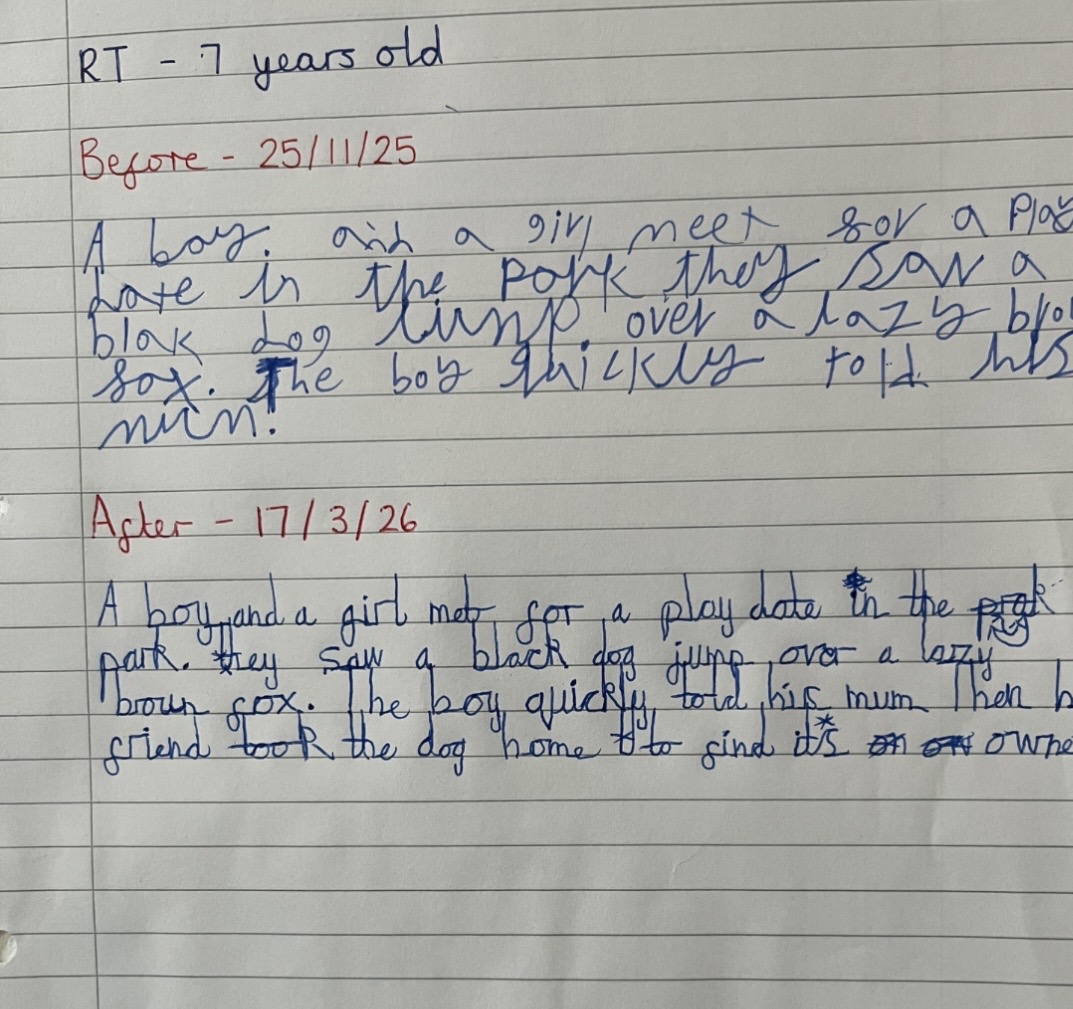 RT - 7 years old
Before - 25/11/25
A boy. and a girl meet for a Play
date in the Park they saw a
blak dog Jump over a lazy bro
fox. The boy quickly told his
mum!
After - 17/3/26
A boy and a girl met for a play date in the
park. they saw a black dog jump over a lazy
brown fox. The boy quickly told his mum Then
friend took the dog home to find it's owne